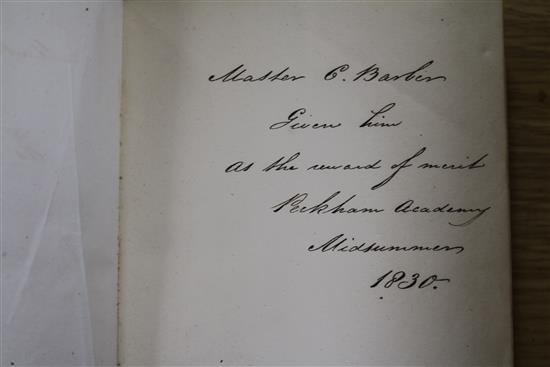 Master C. Barber
Given him
as the reward of merit
Peckham Academy
Midsummer
1830.